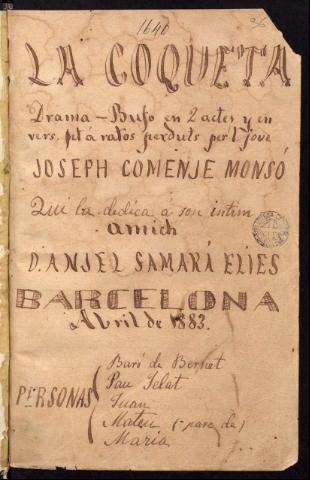 1640
LA COQUETA
Drama-Bufo en 2 actes y en
vers, fet á ratos perduts per l'jove
JOSEPH COMENJE MONSÓ
Qui la dedica á son intim
amich
D. ANJEL SAMARÁ ELIES
BARCELONA
Abril de 1883.
PERSONAS
Baró de Bernet
Pau Pelat
Juan
Mateu (-pare de)
Maria